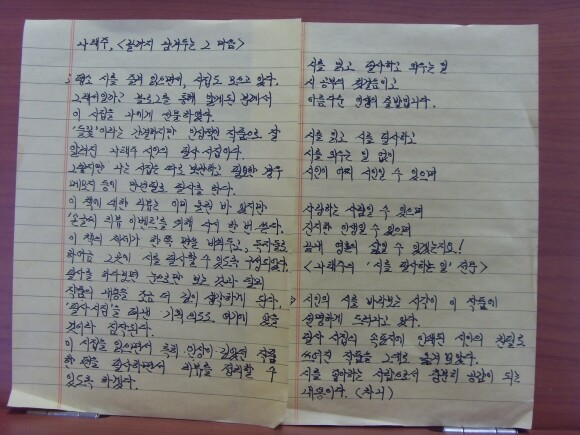 나태주, <끝까지 남겨두는 그 마음>
평소 시를 즐겨 읽으면서, 시집도 모으고 있다.
그래서일까? 블로그를 통해 알게된 분께서
이 시집을 나에게 선물하였다.
'풀꽃'이라는 간결하지만 인상적인 작품으로 잘
알려진 나태주 시인의 필사 시집이다.
그렇지만 나는 시집은 따로 보관하고 필요한 경우
메모지 등에 만년필로 필사를 한다.
이 책에 대한 리뷰는 이미 올린 바 있지만,
'손글씨 리뷰 이벤트'를 위해 다시 한 번 쓴다.
이 책의 저자가 한 쪽 면을 비워두고, 독자들로
하여금 그 곳에 시를 필사할 수 있도록 구성되었다.
필사를 하다보면 눈으로만 보는 것과 달리
작품의 내용을 조금 더 깊이 생각하게 된다.
'필사 시집'을 펴낸 기획 의도도 여기에 있을
것이라 짐작된다.
이 시집을 읽으면서 특히 인상이 깊었던 작품
한 편을 필사하면서 리뷰를 정리할 수
있도록 하겠다.
시를 읽고 필사하고 외우는 일
시 공부의 첫걸음이고
아름다운 인생의 출발입니다.
시를 읽고 시를 필사하고
시를 외우는 일 없이
시인이 어찌 시인일 수 있으며
사람하는 사람일 수 있으며
진지한 인생일 수 있으며
끝내 영혼의 삶일 수 있겠는지요!
<나태주의 '시를 필사하는 일' 전문>
시인의 시를 바라보는 시각이 이 작품에
선명하게 드러나고 있다.
필사 시집의 속표지에 인쇄된 시인의 친필로
쓰여진 작품을 그대로 옮겨 보았다.
시를 좋아하는 사람으로서 충분히 공감이 되는
내용이다. (차니)